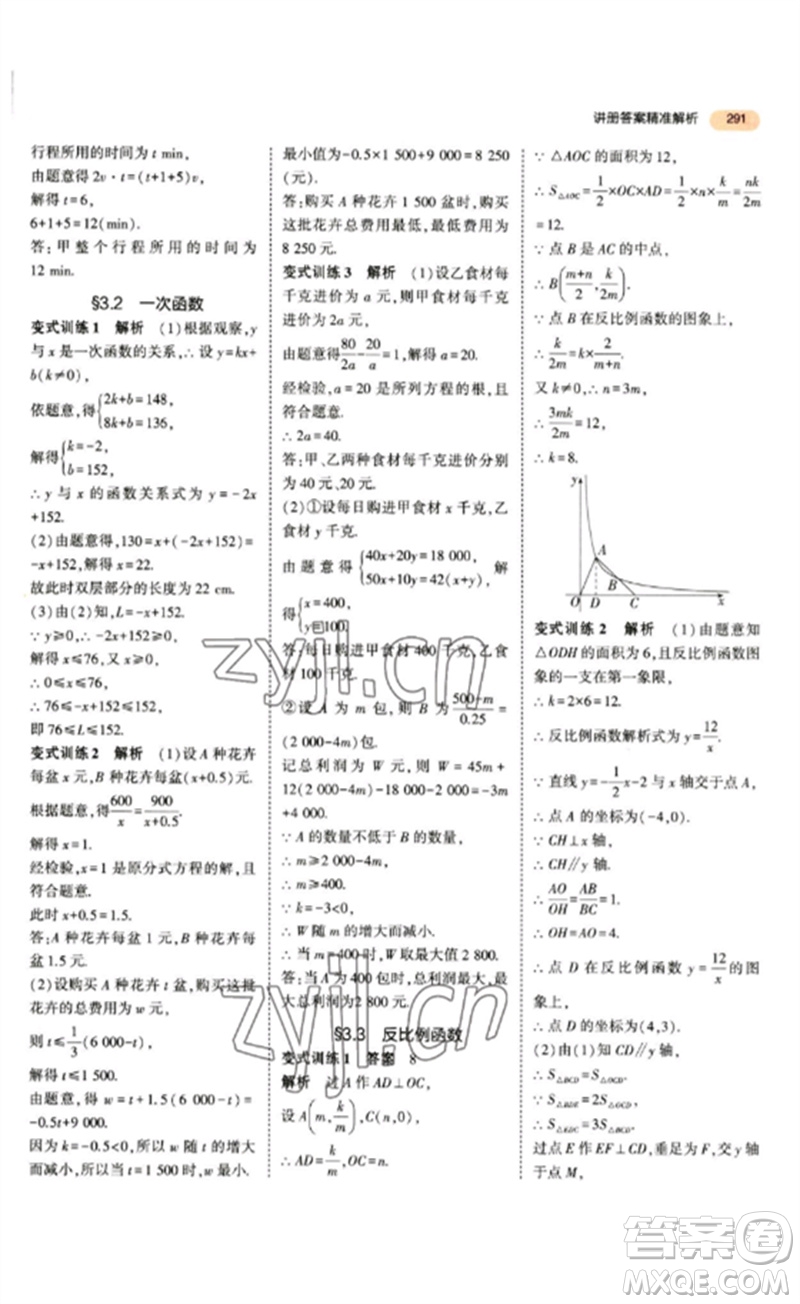 讲册答案精准解析 291
行程所用的时间为 t min,
由题意得 2v·t=(t+1+5)v,
解得 t=6,
6+1+5=12(min).
答:甲整个行程所用的时间为
12 min.
§3.2 一次函数
变式训练1 解析 (1)根据观察,y
与 x 是一次函数的关系,∴ 设 y=kx+
b(k≠0),
依题意,得{2k+b=148, 8k+b=136,
解得{k=-2, b=152,
∴ y 与 x 的函数关系式为 y=-2x
+152.
(2)由题意得,130=x+(-2x+152)=-x
+152,解得 x=22.
故此时双层部分的长度为 22 cm.
(3)由(2)知,L=-x+152.
∵ y≥0,∴ -2x+152≥0,
解得 x≤76,又 x≥0,
∴ 0≤x≤76,
∴ 76≤-x+152≤152,
即 76≤L≤152.
变式训练2 解析 (1)设 A 种花卉
每盆 x 元,B 种花卉每盆(x+0.5)元.
根据题意,得600/x=900/(x+0.5).
解得 x=1.
经检验,x=1 是原分式方程的解,且
符合题意.
此时 x+0.5=1.5.
答:A 种花卉每盆 1 元,B 种花卉每
盆 1.5 元.
(2)设购买 A 种花卉 t 盆,购买这批
花卉的总费用为 w 元,
则 t≤1/3(6 000-t),
解得 t≤1 500.
由题意,得 w=t+1.5(6 000-t)=
-0.5t+9 000.
因为 k=-0.5<0,所以 w 随 t 的增大
而减小,所以当 t=1 500 时,w 最小.
最小值为-0.5×1 500+9 000=8 250
(元).
答:购买 A 种花卉 1 500 盆时,购买
这批花卉总费用最低,最低费用为
8 250 元.
变式训练3 解析 (1)设乙食材每
千克进价为 a 元,则甲食材每千克
进价为 2a 元,
由题意得80/2a-20/a=1,解得 a=20.
经检验,a=20 是所列方程的根,且
符合题意.
∴ 2a=40.
答:甲、乙两种食材每千克进价分别
为 40 元、20 元.
(2)①设每日购进甲食材 x 千克,乙
食材 y 千克.
由题意得{40x+20y=18 000, 50x+10y=42(x+y), 解
得{x=400, y=100.
答:每日购进甲食材 400 千克,乙食
材 100 千克.
②设 A 为 m 包,则 B 为(500-m)/0.25=
(2 000-4m)包.
记总利润为 W 元,则 W=45m+
12(2 000-4m)-18 000-2 000=-3m
+4 000.
∵ A 的数量不低于 B 的数量,
∴ m≥2 000-4m,
∴ m≥400.
∵ k=-3<0,
∴ W 随 m 的增大而减小.
∴ 当 m=400 时,W 取最大值 2 800.
答:当 A 为 400 包时,总利润最大,最
大总利润为2 800 元.
§3.3 反比例函数
变式训练1 答案 8
解析 过 A 作 AD⊥OC,
设 A(m,k/m),C(n,0),
∴ AD=k/m,OC=n.
∵ △AOC 的面积为 12,
∴ S△AOC=1/2×OC×AD=1/2×n×k/m=nk/2m
=12.
∵ 点 B 是 AC 的中点,
∴ B((m+n)/2,k/2m).
∵ 点 B 在反比例函数的图象上,
∴ k/2m=k×2/(m+n).
又 k≠0,∴ n=3m,
∴ 3mk/2m=12,
∴ k=8.
y
A
B
O D C x
变式训练2 解析 (1)由题意知
△ODH 的面积为 6,且反比例函数图
象的一支在第一象限,
∴ k=2×6=12.
∴ 反比例函数解析式为 y=12/x.
∵ 直线 y=-1/2x-2 与 x 轴交于点 A,
∴ 点 A 的坐标为(-4,0).
∵ CH⊥x 轴,
∴ CH∥y 轴.
∴ AO/OH=AB/BC=1.
∴ OH=AO=4.
∵ 点 D 在反比例函数 y=12/x 的图
象上,
∴ 点 D 的坐标为(4,3).
(2)由(1)知 CD∥y 轴,
∴ S△BCD=S△OCD.
∵ S△BDE=2S△OCD,
∴ S△EDC=3S△BCD.
过点 E 作 EF⊥CD,垂足为 F,交 y 轴
于点 M,
zyjl.cn
zyjl.cn
答案卷
MXQE.COM